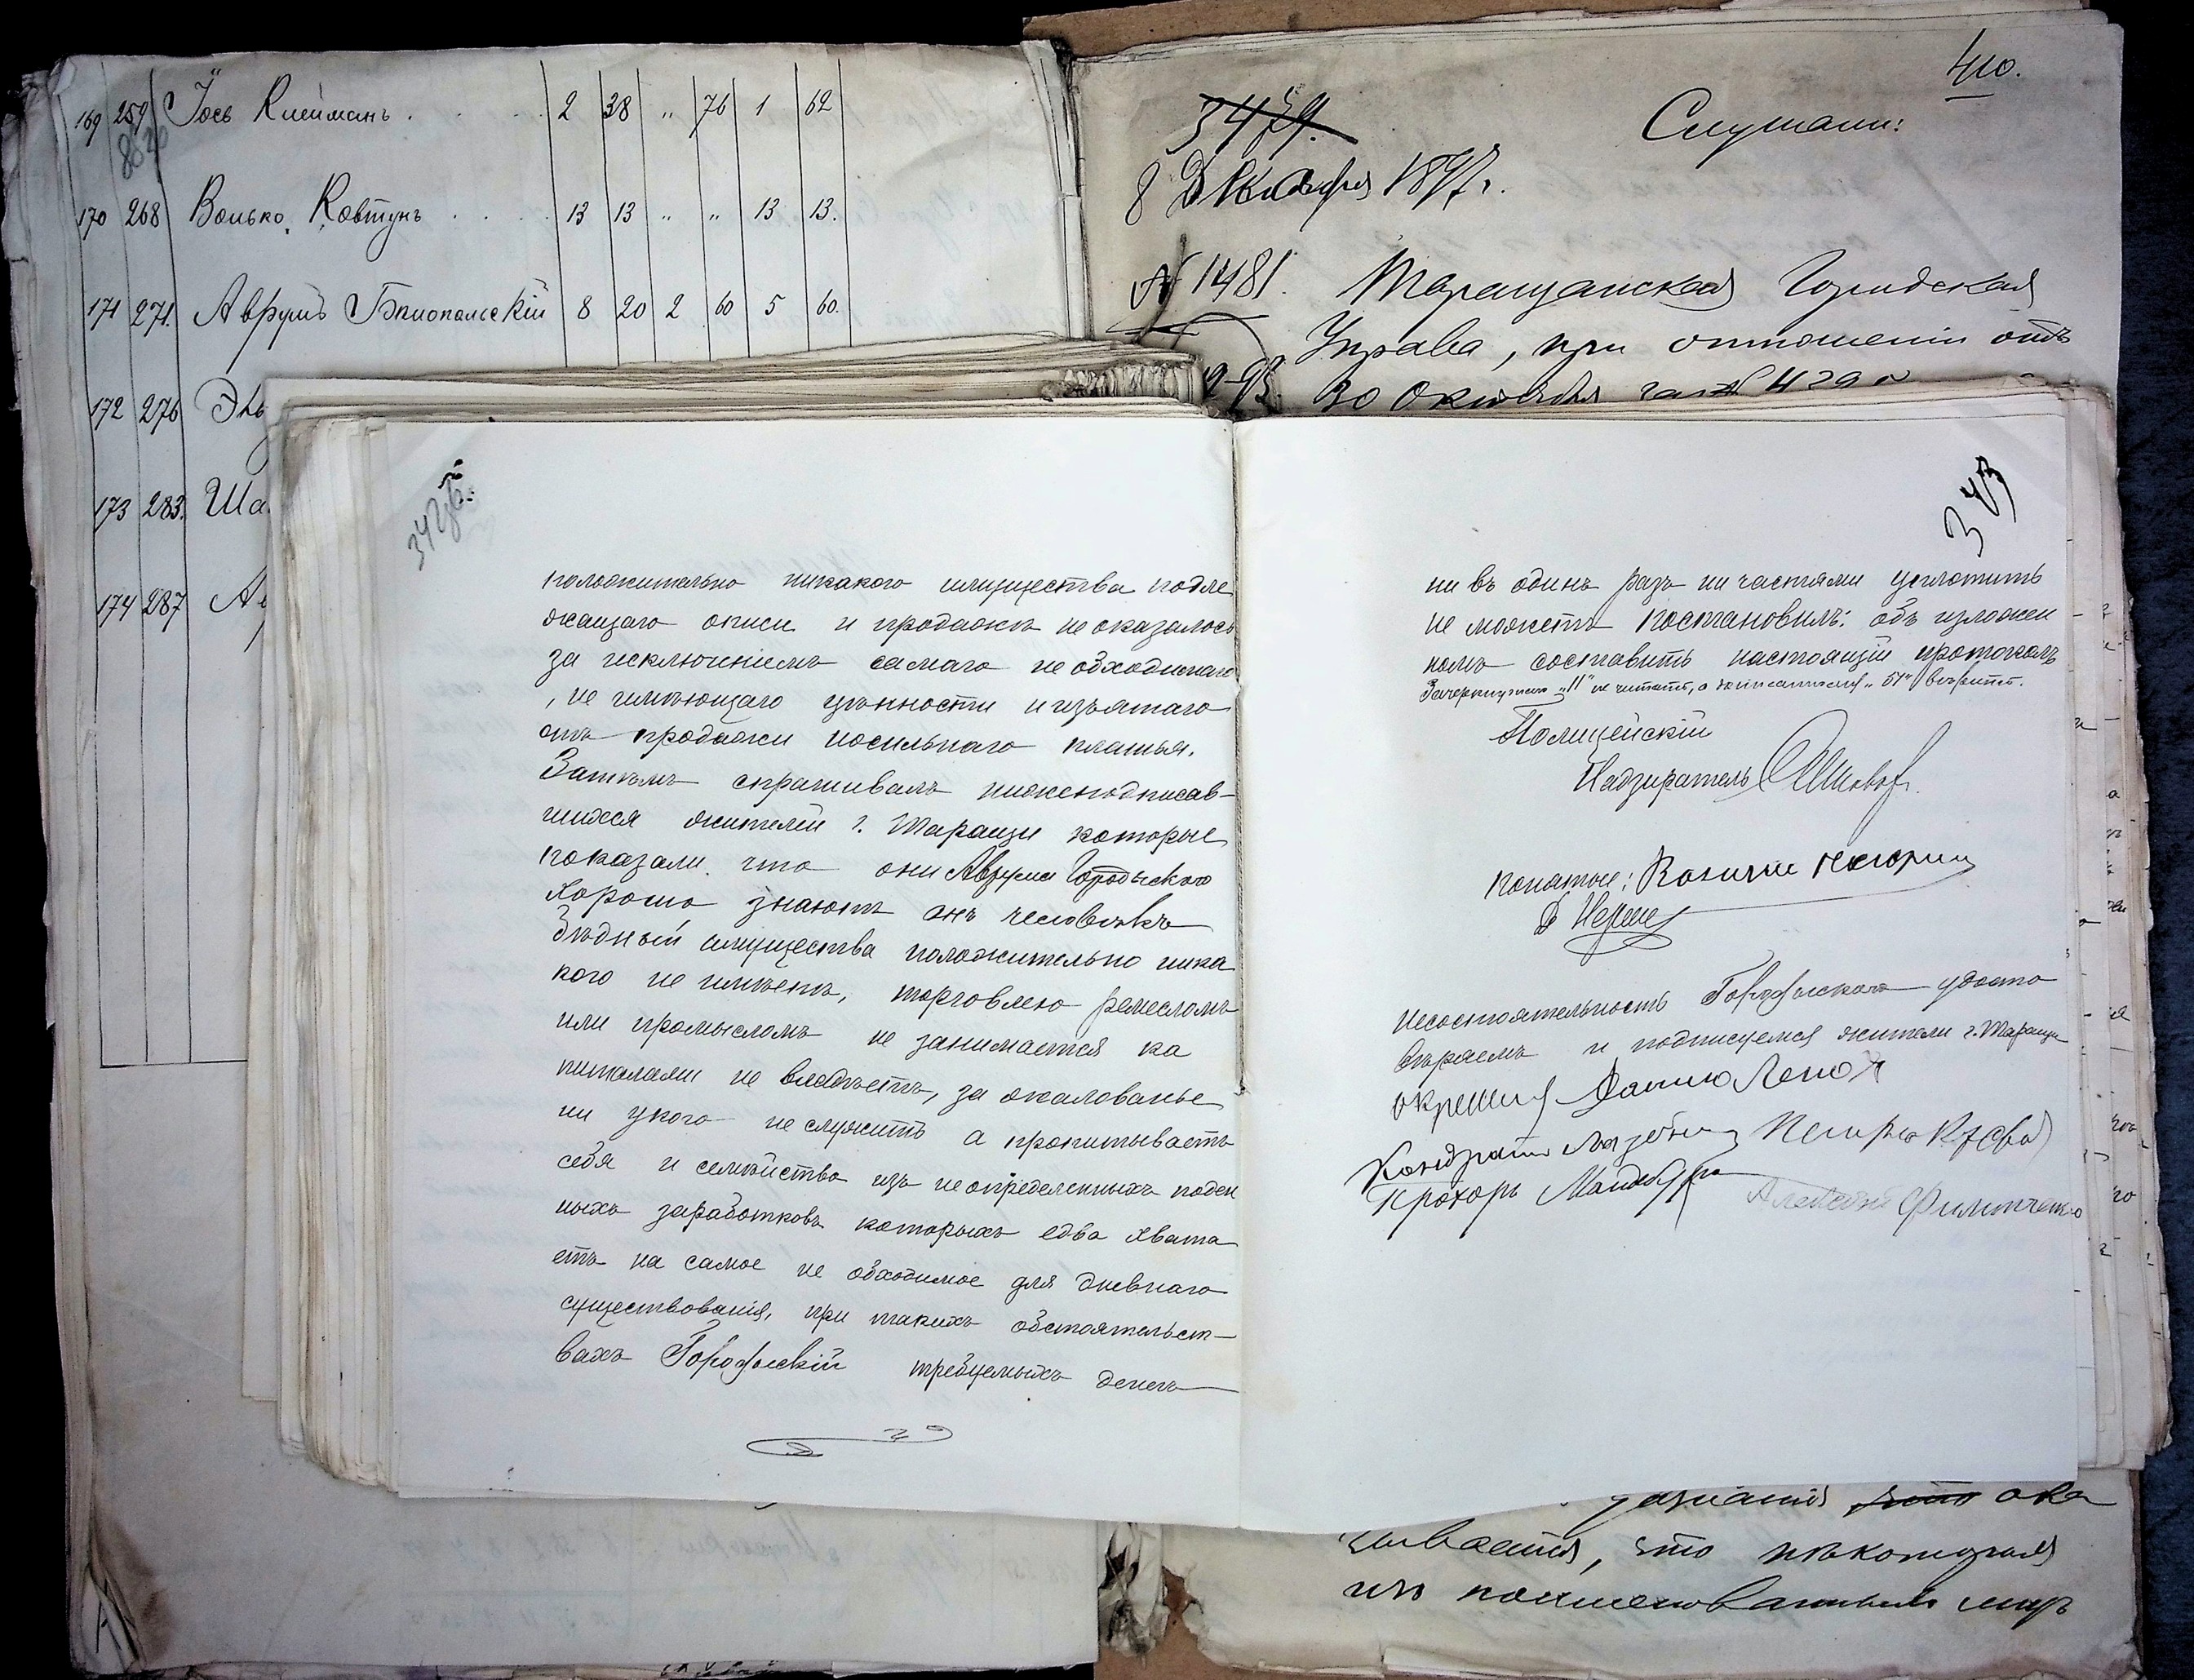 169 259 Іось Клейманъ 2 38 " 76 1 62
170 268 Волько Ковтунъ 13 13 " " 13 13.
171 271. Аврумъ Бялопольскій 8 20 2 60 5 60.
172 276
173 283. Ша
174 287
410.
3479.
Слушали:
8 Декабря 1897 г.
№ 1481. Таращанская Городская
Управа, при отношеніи отъ
30 Октября
342 об.
положительно никакого имущества подле
жащаго описи и продажѣ не оказалось
за исключеніемъ самаго не обходимаго
, не имѣющаго цѣнности и изъятаго
отъ продажи носильнаго платья.
Затѣмъ спрашивалъ нижеподписав-
шихся жителей г. Таращи которые
показали что они Аврума Городыскаго
хорошо знаютъ онъ человѣкъ
бѣдный имущества положительно ника
кого не имѣетъ, торговлею ремесломъ
или промысломъ не занимается ка
питалами не владѣетъ, за жалованье
ни у кого не служитъ а пропитываетъ
себя и семѣйство изъ неопределенныхъ поден
ныхъ заработковъ которыхъ едва хвата
етъ на самое не обходимое для дневнаго
существованія, при такихъ обстоятельст-
вахъ Городыскій требуемыхъ денегъ
343
ни въ одинъ разъ ни частями уплотить
не можетъ постановилъ: объ изложен
номъ составить настоящій протоколъ
Зачеркнутое "11" не читать, а "51" вѣрить.
Полицейскій
Надзиратель
понятые:
Несостоятельность Городыскаго удосто
вѣряемъ и подписуемся жители г. Таращи
Данило
Кондратъ
Прохоръ
Алексѣй Филипченко
дознанія это ока
зывается, что нѣкоторыя
изъ поименованныхъ лицъ